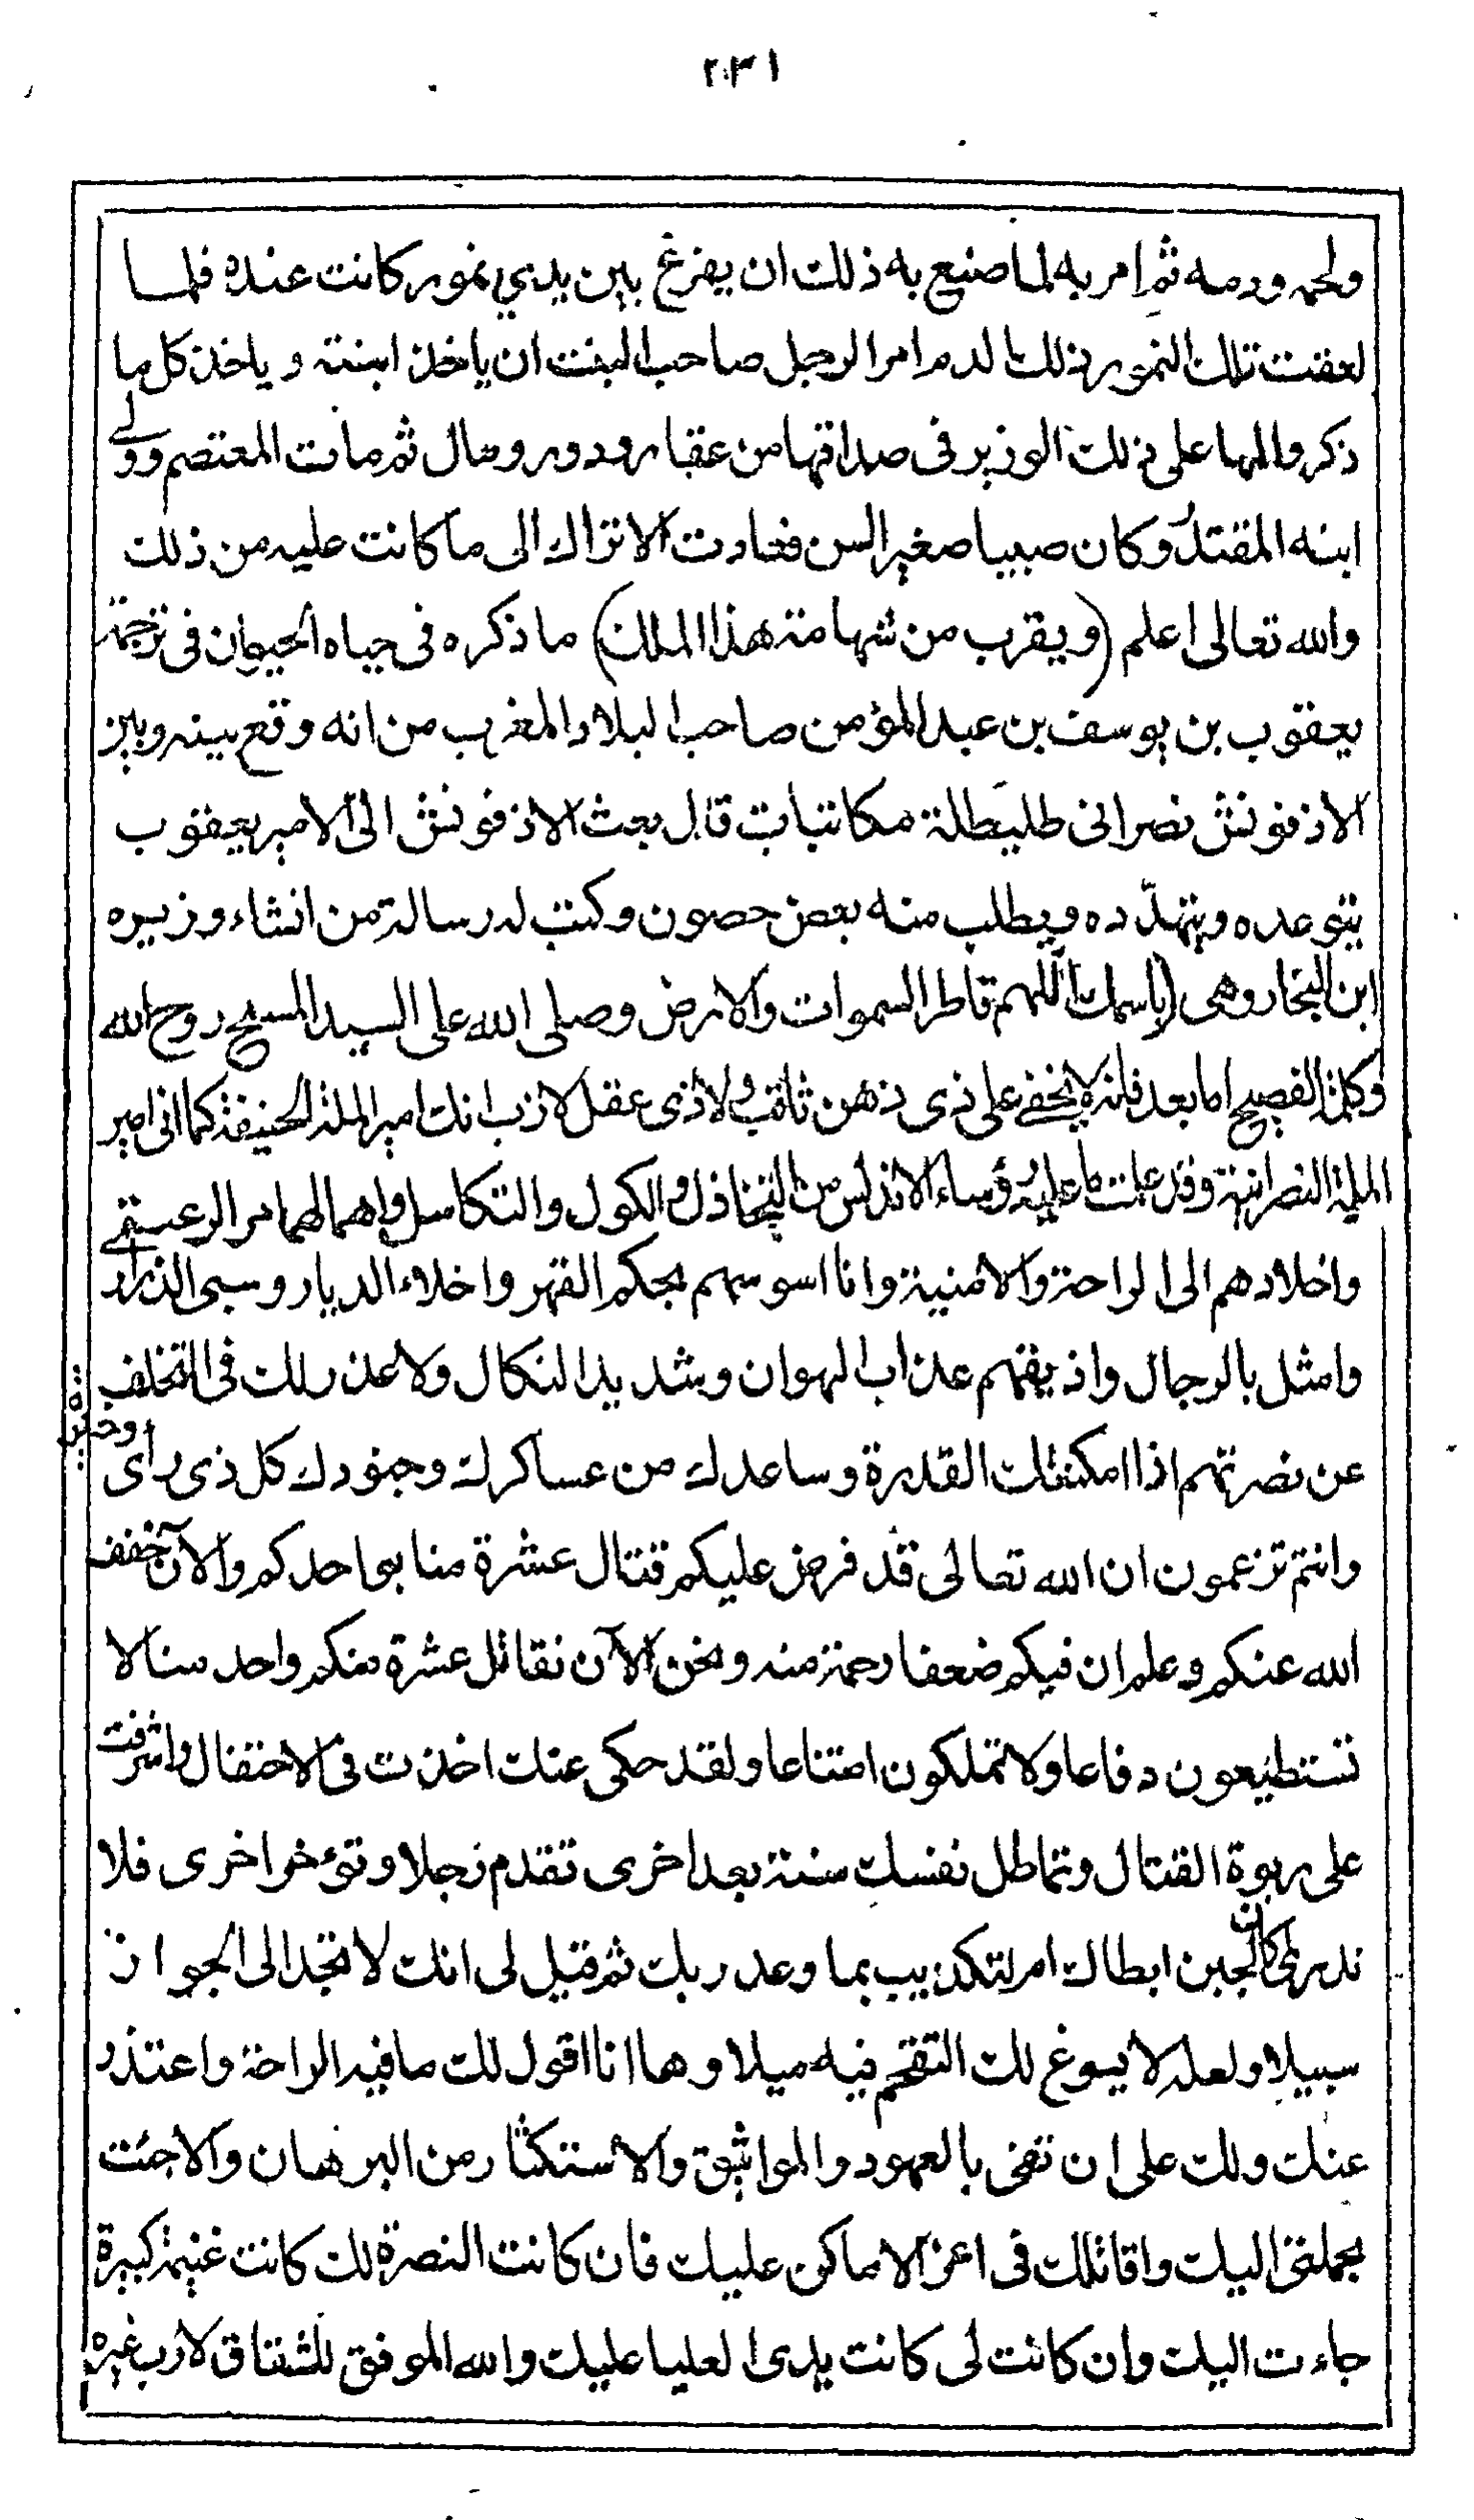 ٢٣١
ولحمه ودمه ثم امر به لما صنيع به ذلك ان يفرغ بين يدي نمور كانت عنده فلما
لعقت تلك النمور ذلك الدم امر الرجل صاحب البنت ان ياخذ ابنته و ياخذ كل ما
ذكر والها على ذلك الوزير فى صداقها من عقار ودور ومال ثم مات المعتصم وولى
ابنه المقتدر وكان صبيا صغير السن فعادت الاتراك الى ما كانت عليه من ذلك
والله تعالى اعلم (ويقرب من شهامة هذا الملك) ما ذكره فى حياه الحيوان فى ترجمة
يعقوب بن يوسف بن عبد المؤمن صاحب البلاد المغرب من انه وقع بينه وبين
الاذفونش نصرانى طليطلة مكاتبات قال بعث الاذفونش الى الامير يعقوب
يتوعده ويتهدّده ويطلب منه بعض حصون وكتب له رسالة من انشاء وزيره
ابن النجار وهى (باسمك اللهم فاطر السموات والارض وصلى الله على السيد المسيح روح الله
وكلمته الفصيح اما بعد فانه لا يخفى على ذى ذهن ثاقب ولا ذى عقل لازب انك امير الملة الحنيفة كما انى امير
الملة النصرانية وقد علمت ما عليه رؤساء الاندلس من التخاذل والكول والتكاسل واهمالهم امر الرعية
واخلادهم الى الراحة والامنية وانا اسوسهم بحكم القهر واخلاء الديار وسبى الذرارى
وامثل بالرجال واذيقهم عذاب الهوان وشديد النكال ولا عذر لك فى التخلف
عن نصرتهم اذا امكنتك القدرة وساعدك من عساكرك وجنودك كل ذى رأى وخبرة
وانتم تزعمون ان الله تعالى قد فرض عليكم قتال عشرة منا بواحدكم والآن خفف
الله عنكم وعلم ان فيكم ضعفا رحمة منه ونحن الآن نقاتل عشرة منكم واحد منا لا
تستطيعون دفاعا ولا تملكون امتناعا ولقد حكى عنك اخذت فى الاحتفال واشرفت
على ربوة القتال وتماطل نفسك سنة بعد اخرى تقدم رجلا وتؤخر اخرى فلا
ندرى اكان الجبن ابطاك ام لتكذيب بما وعد ربك ثم قيل لى انك لا تجد الى الجواز
سبيلا ولعله لا يسوغ لك التقحم فيه ميلا وها انا اقول لك ما فيه الراحة واعتذر
عنك ولك على ان تفى بالعهود والمواثيق والاستكثار من البرهان والا جئت
بجملتى اليك واقاتلك فى اعز الاماكن عليك فان كانت النصرة لك كانت غنيمة كبيرة
جاءت اليك وان كانت لى كانت يدى العليا عليك والله الموفق للشقاق لا رب غيره